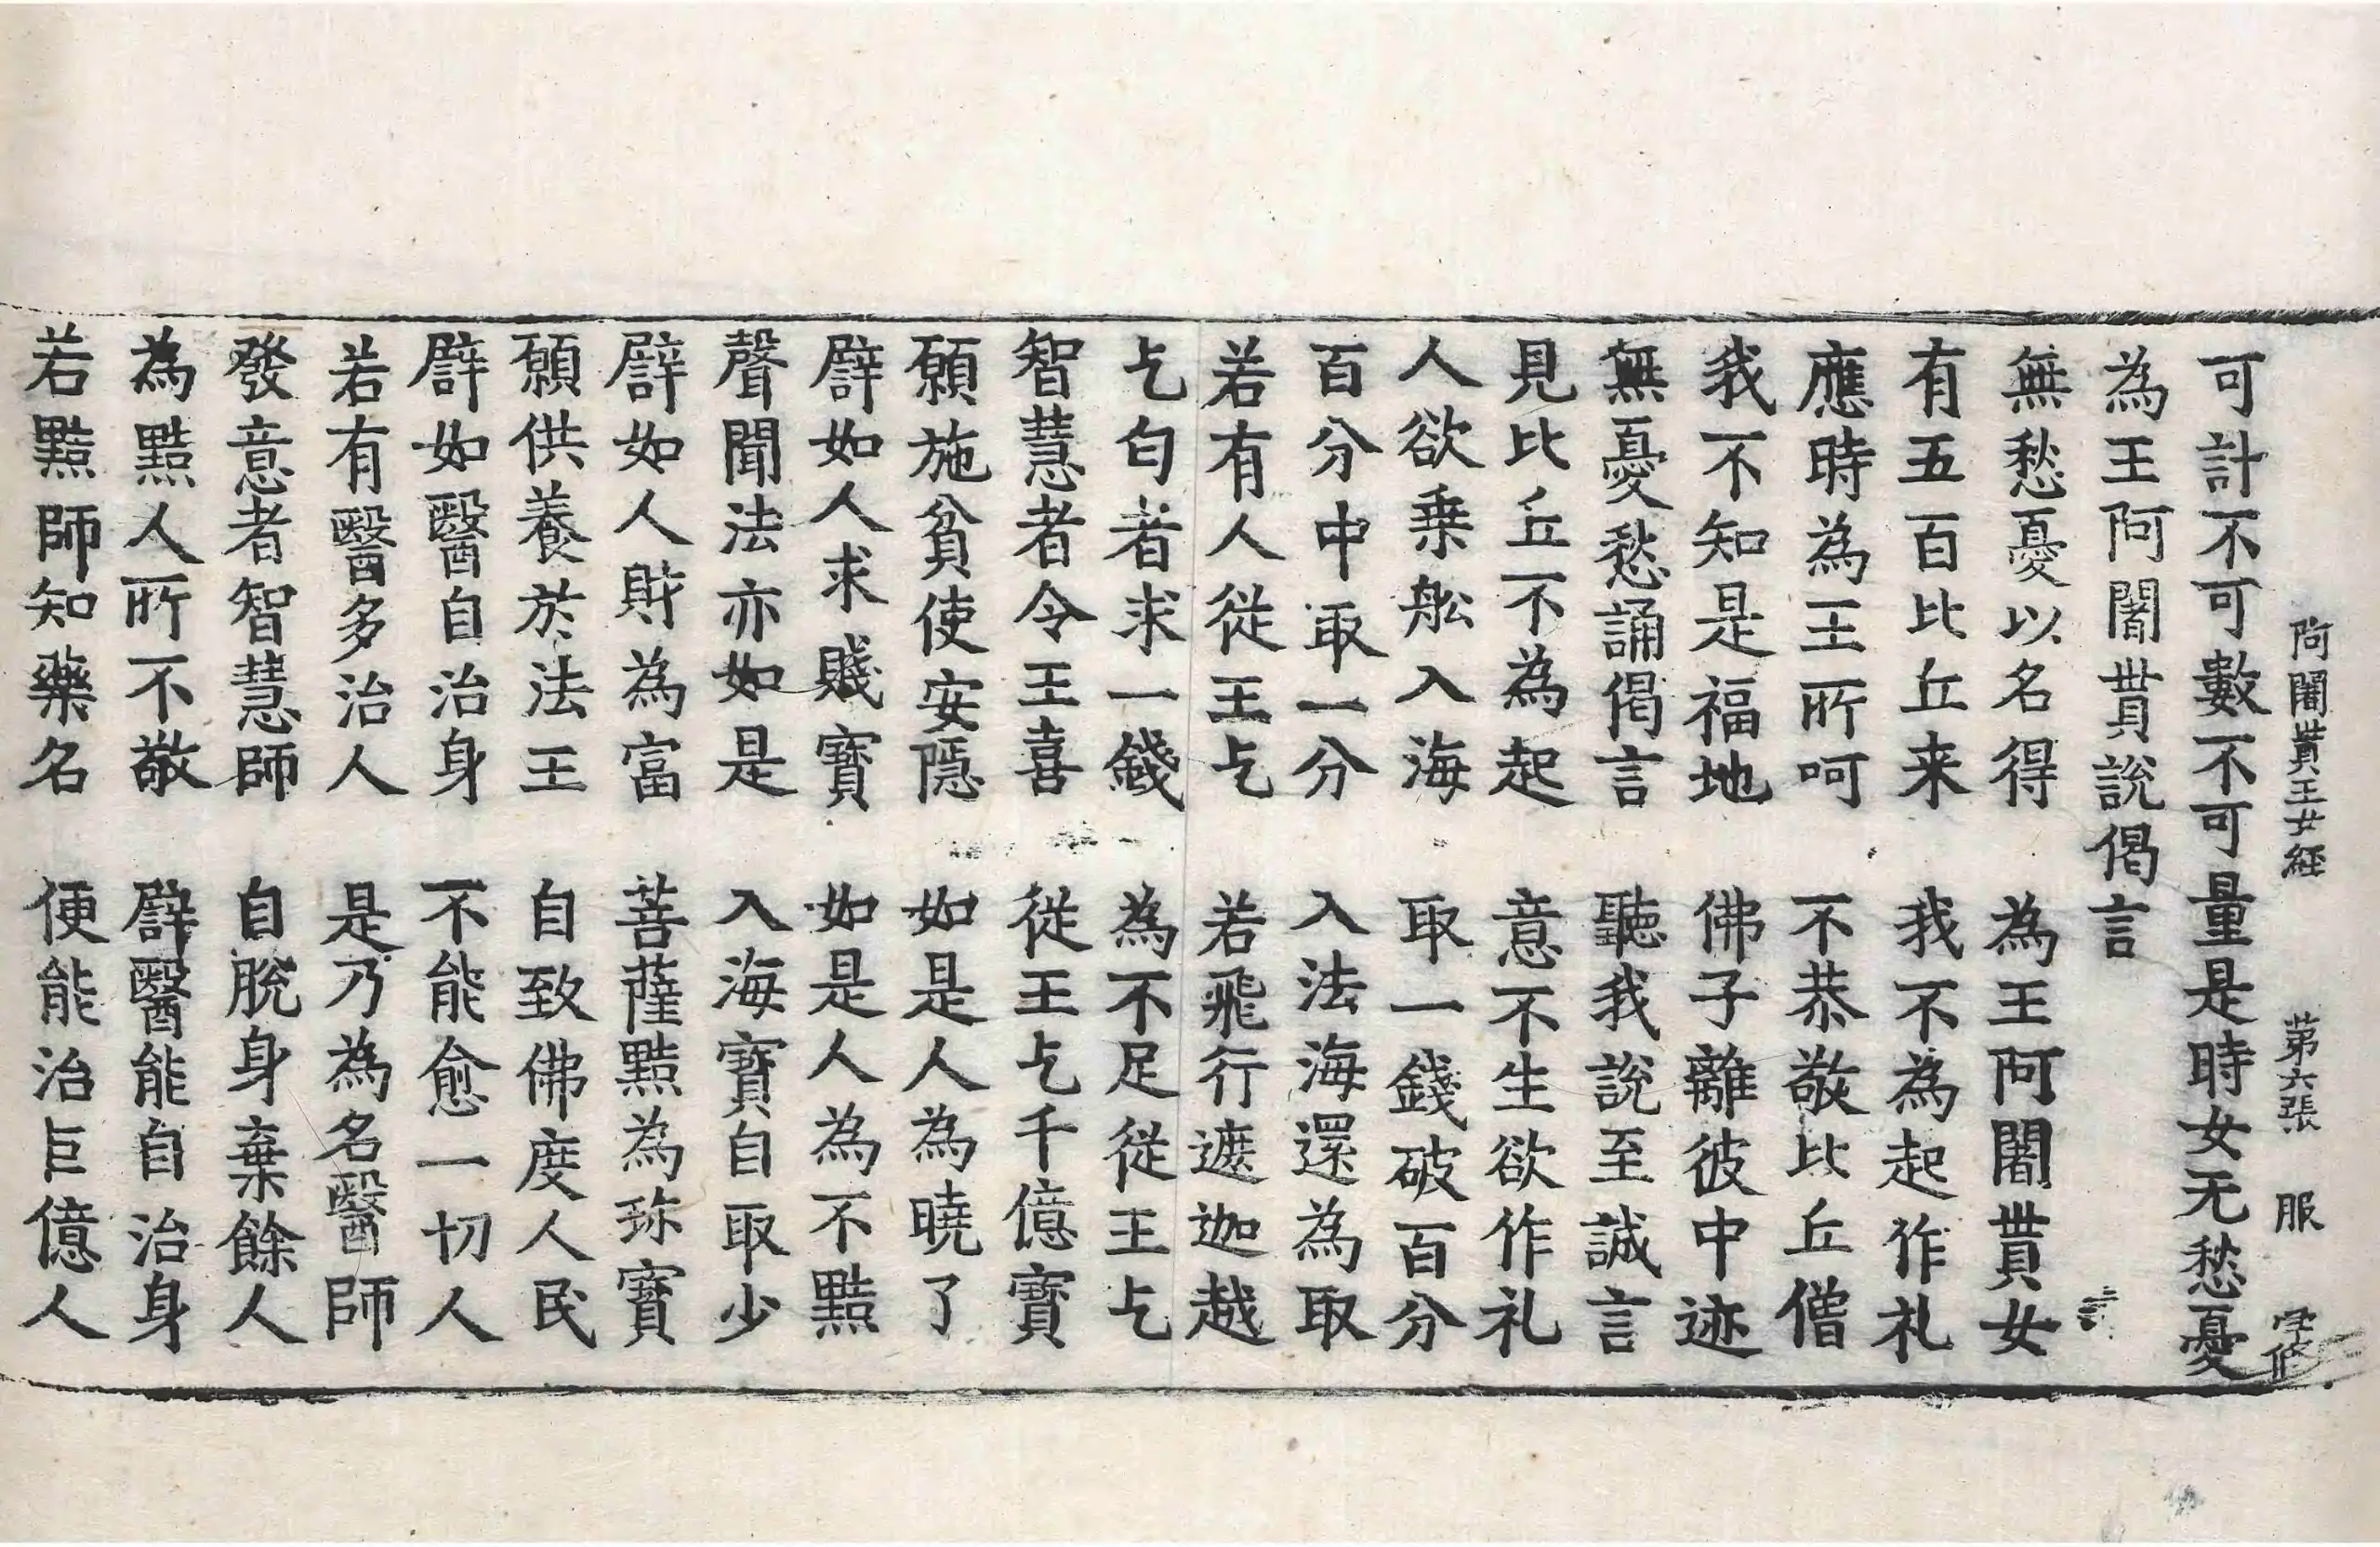 阿闍貰王女經 第六張 服 字修
可計不可數不可量是時女无愁憂
為王阿闍貰說偈言
無愁憂以名得 為王阿闍貰女
有五百比丘来 我不為起作礼
應時為王所呵 不恭敬比丘僧
我不知是福地 佛子離彼中迹
無憂愁誦偈言 聽我說至誠言
見比丘不為起 意不生欲作礼
人欲乗舩入海 取一錢破百分
百分中取一分 入法海還為取
若有人従王乞 若飛行遮迦越
乞匄者求一錢 為不足従王乞
智慧者令王喜 従王乞千億寶
願施貧使安隱 如是人為曉了
辟如人求賤寶 如是人為不黠
聲聞法亦如是 入海寶自取少
辟如人財為富 菩薩黠為珎寶
願供養於法王 自致佛度人民
辟如醫自治身 不能愈一切人
若有醫多治人 是乃為名醫師
發意者智慧師 自脫身棄餘人
為黠人所不敬 辟醫能自治身
若黠師知藥名 便能治巨億人